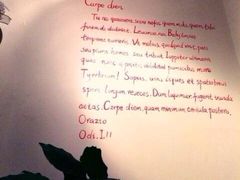 Carpe diem
Tu ne quaesieris, scire nefas, quem mihi, quem tibi
finem di dederint, Leuconoe, nec Babylonios
temptaris numeros. Ut melius, quidquid erit, pati,
seu pluris hiemes seu tribuit Iuppiter ultimam,
quae nunc oppositis debilitat pumicibus mare
Tyrrhenum! Sapias, vina liques et spatio brevi
spem longam reseces. Dum loquimur fugerit invida
aetas. Carpe diem, quam minimum credula postero.
Orazio
Odi, I.11